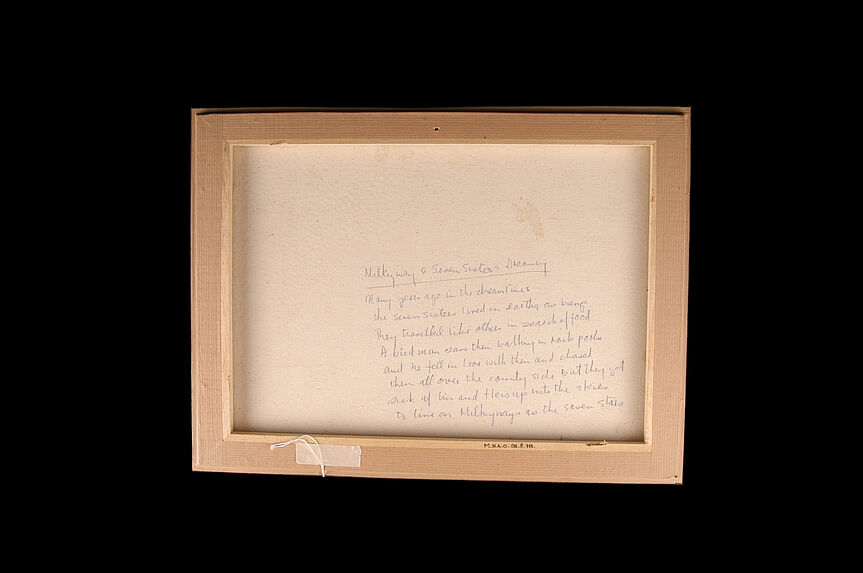 Milkyway & Seven Sisters Dreaming
Many years ago in the dreamtimes
the seven sisters lived on earth as beings
They travelled like others in search of food
A bird man saw them bathing in rock pools
and he fell in love with them and chased
them all over the county side but they got
sick of him and flew up into the skies
to live on Milkyways as the seven stars